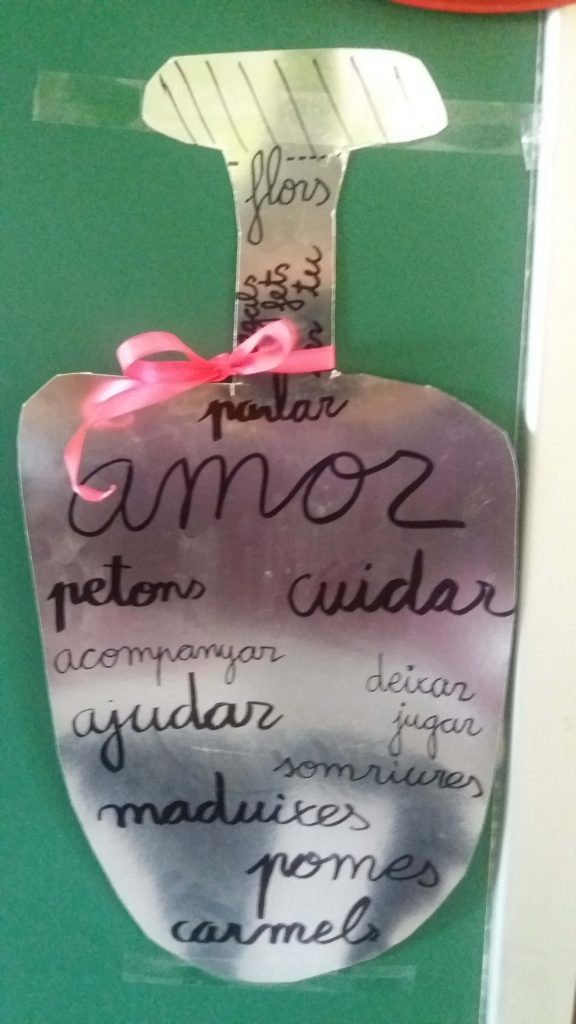 flors
fets
tu
parlar
amor
petons cuidar
acompanyar
deixar
ajudar
jugar
somriures
maduixes
pomes
carmels